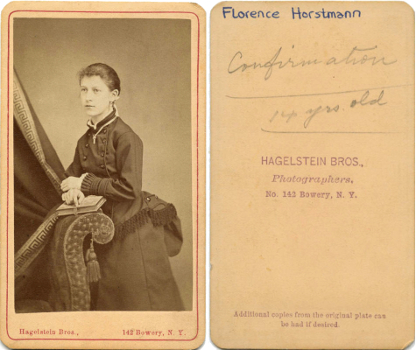 Hagelstein Bros., 142 Bowery, N. Y.
Florence Horstmann
Confirmation
14 yrs. old
HAGELSTEIN BROS.,
Photographers,
No. 142 Bowery, N. Y.
Additional copies from the original plate can
be had if desired.